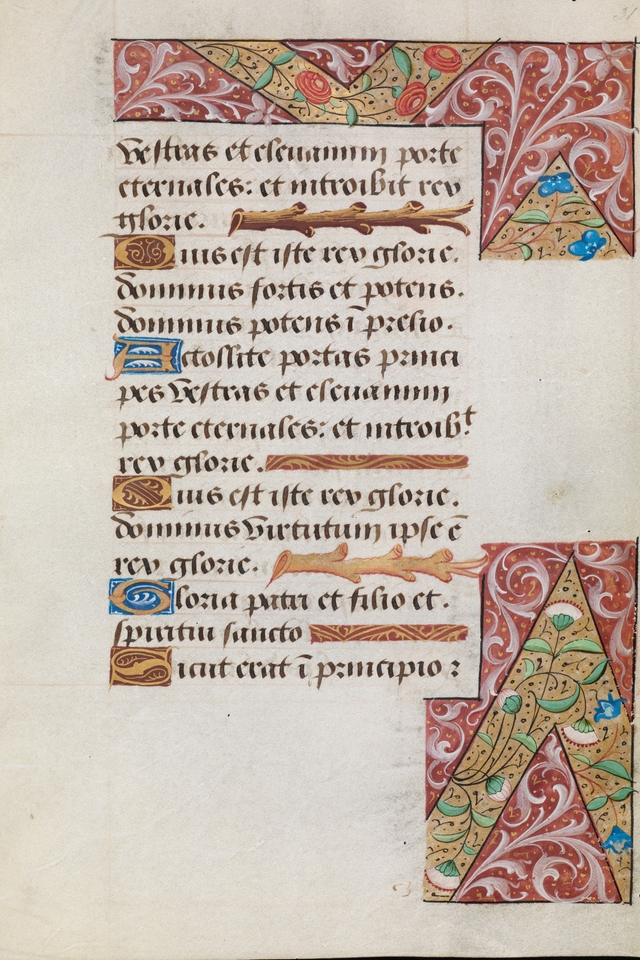 31
vestras et eleuamini porte
eternales: et introibit rex
glorie.
Quis est iste rex glorie.
dominus fortis et potens.
dominus potens ī prelio.
Actollite portas princi
pes vestras et eleuamini
porte eternales: et introibt
rex glorie.
Quis est iste rex glorie.
dominus virtutum ipse ē
rex glorie.
Gloria patri et filio et.
spiritui sancto
Sicut erat ī principio ⁊